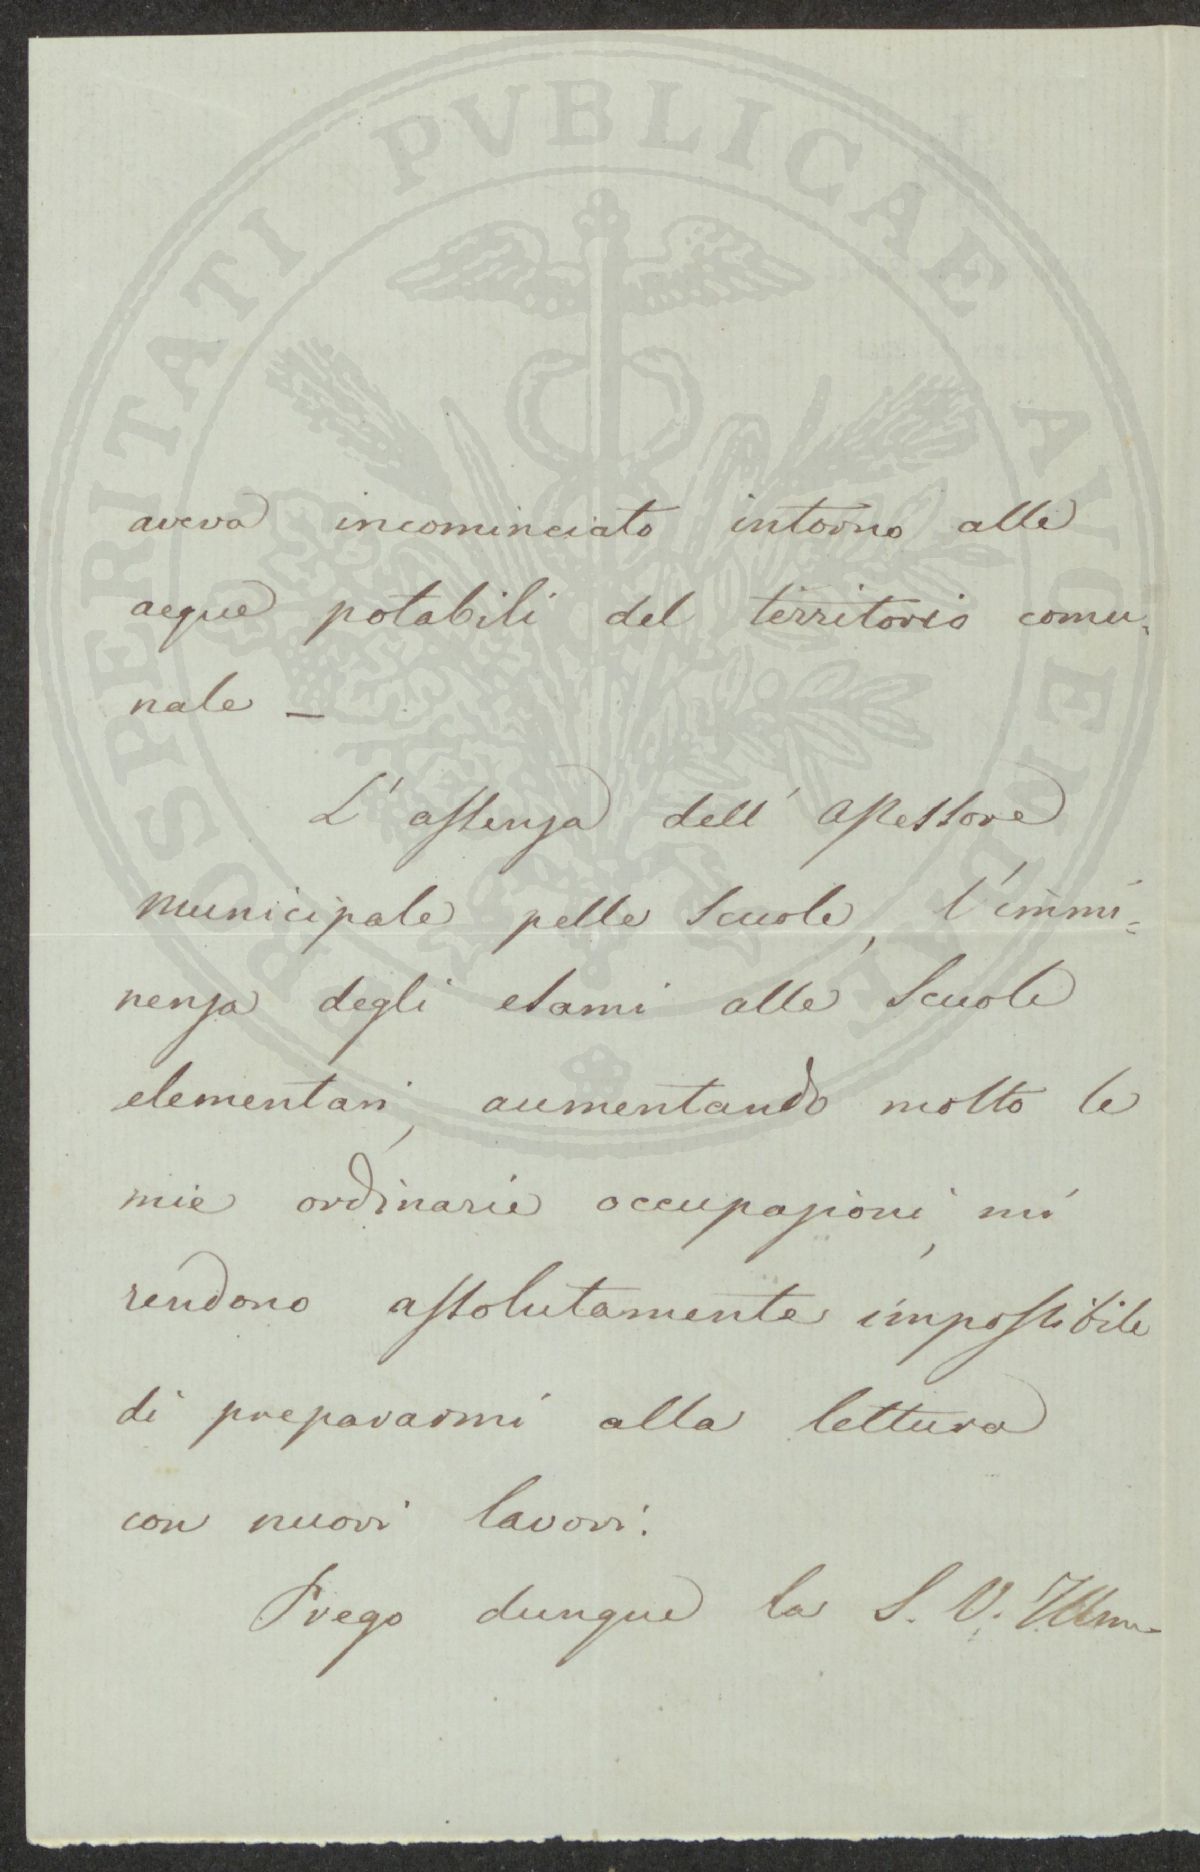 PROSPERITATI PVBLICAE AVGENDAE
aveva incominciato intorno alle
acque potabili del territorio comu-
nale —
L'assenza dell'Assessore
Municipale pelle Scuole, l'immi-
nenza degli esami alle Scuole
elementari, aumentando molto le
mie ordinarie occupazioni, mi
rendono assolutamente impossibile
di prepararmi alla lettura
con nuovi lavori.
Prego dunque la S. V. Illma